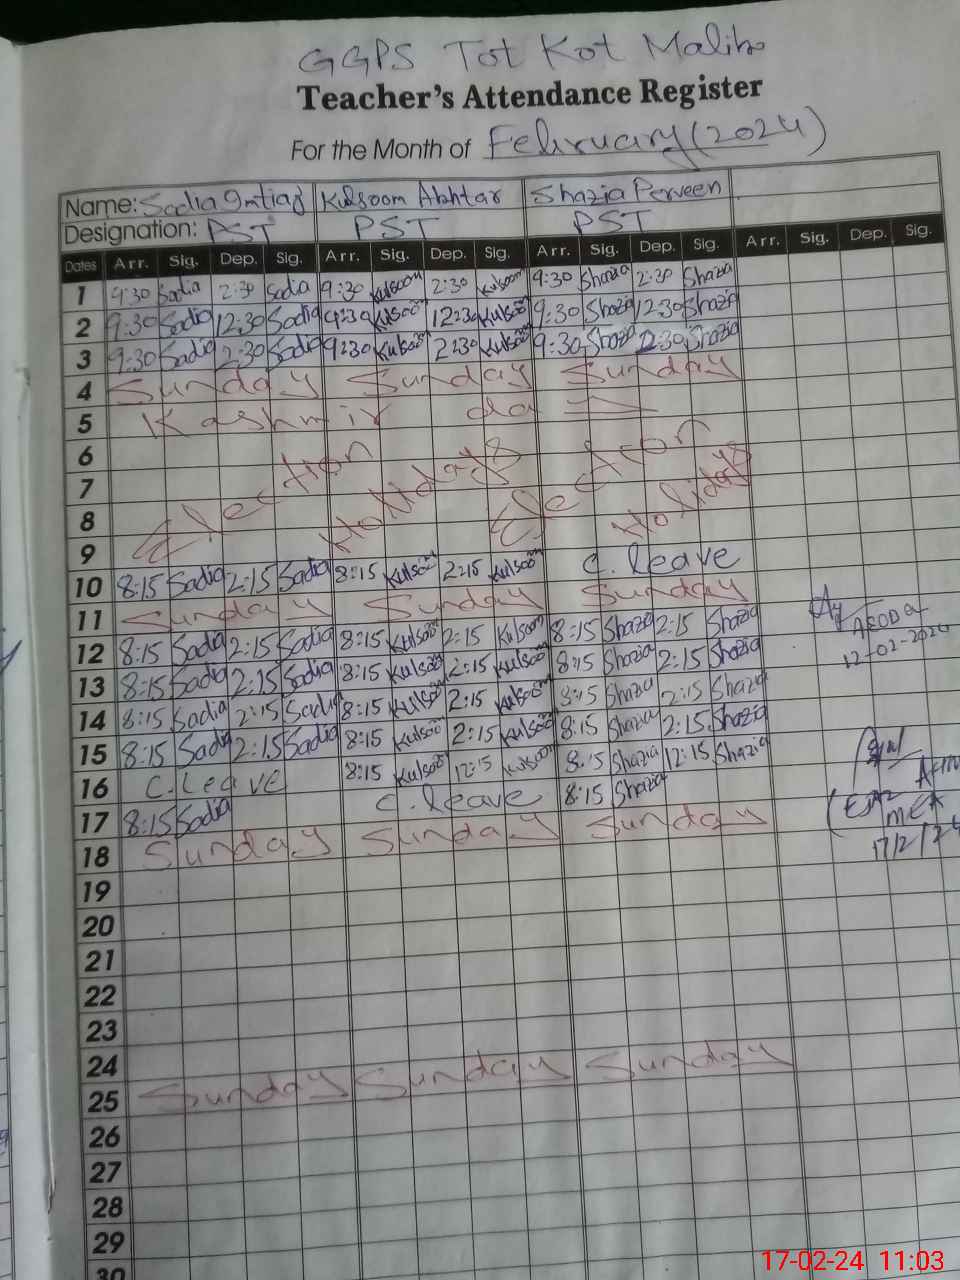 GGPS Tot Kot Malik
Teacher's Attendance Register
For the Month of February (2024)
Name: Sadia Imtiaz Kulsoom Akhtar Shazia Perveen
Designation: PST PST PST
Dates Arr. Sig. Dep. Sig. Arr. Sig. Dep. Sig. Arr. Sig. Dep. Sig. Arr. Sig. Dep. Sig.
1 9:30 Sadia 2:30 Sadia 9:30 Kulsoom 2:30 Kulsoom 9:30 Shazia 2:30 Shazia
2 9:30 Sadia 12:30 Sadia 9:30 Kulsoom 12:30 Kulsoom 9:30 Shazia 12:30 Shazia
3 9:30 Sadia 2:30 Sadia 9:30 Kulsoom 2:30 Kulsoom 9:30 Shazia 2:30 Shazia
4 Sunday Sunday Sunday
5 Kashmir day
6
7 Election Holidays Election Holidays
8
9
10 8:15 Sadia 2:15 Sadia 8:15 Kulsoom 2:15 Kulsoom C. leave
11 Sunday Sunday Sunday
12 8:15 Sadia 2:15 Sadia 8:15 Kulsoom 2:15 Kulsoom 8:15 Shazia 2:15 Shazia AEO 12-02-2024
13 8:15 Sadia 2:15 Sadia 8:15 Kulsoom 2:15 Kulsoom 8:15 Shazia 2:15 Shazia
14 8:15 Sadia 2:15 Sadia 8:15 Kulsoom 2:15 Kulsoom 8:15 Shazia 2:15 Shazia
15 8:15 Sadia 2:15 Sadia 8:15 Kulsoom 2:15 Kulsoom 8:15 Shazia 2:15 Shazia
16 C. Leave 8:15 Kulsoom 12:15 Kulsoom 8:15 Shazia 12:15 Shazia
17 8:15 Sadia C. leave 8:15 Shazia MEA 17/2/24
18 Sunday Sunday Sunday
19
20
21
22
23
24
25 Sunday Sunday Sunday
26
27
28
29
30
17-02-24 11:03